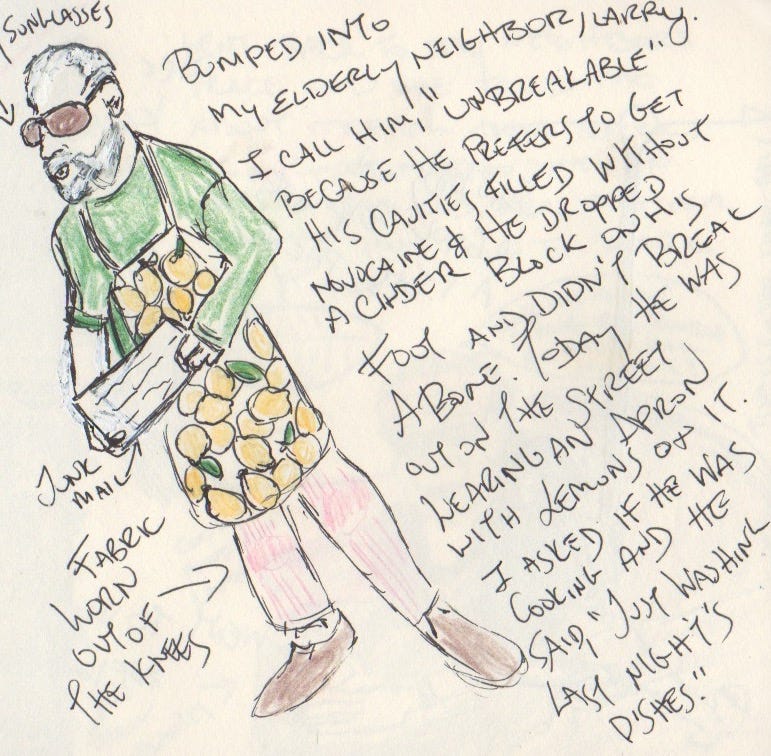 SUNGLASSES
BUMPED INTO
MY ELDERLY NEIGHBOR, LARRY.
I CALL HIM, "UNBREAKABLE"
BECAUSE HE PREFERS TO GET
HIS CAVITIES FILLED WITHOUT
NOVOCAINE & HE DROPPED
A CINDER BLOCK ON HIS
FOOT AND DIDN'T BREAK
A BONE. TODAY HE WAS
OUT ON THE STREET
WEARING AN APRON
WITH LEMONS ON IT.
I ASKED IF HE WAS
COOKING AND HE
SAID, "JUST WASHING
LAST NIGHT'S
DISHES."
JUNK
MAIL
FABRIC
WORN
OUT OF
THE KNEES